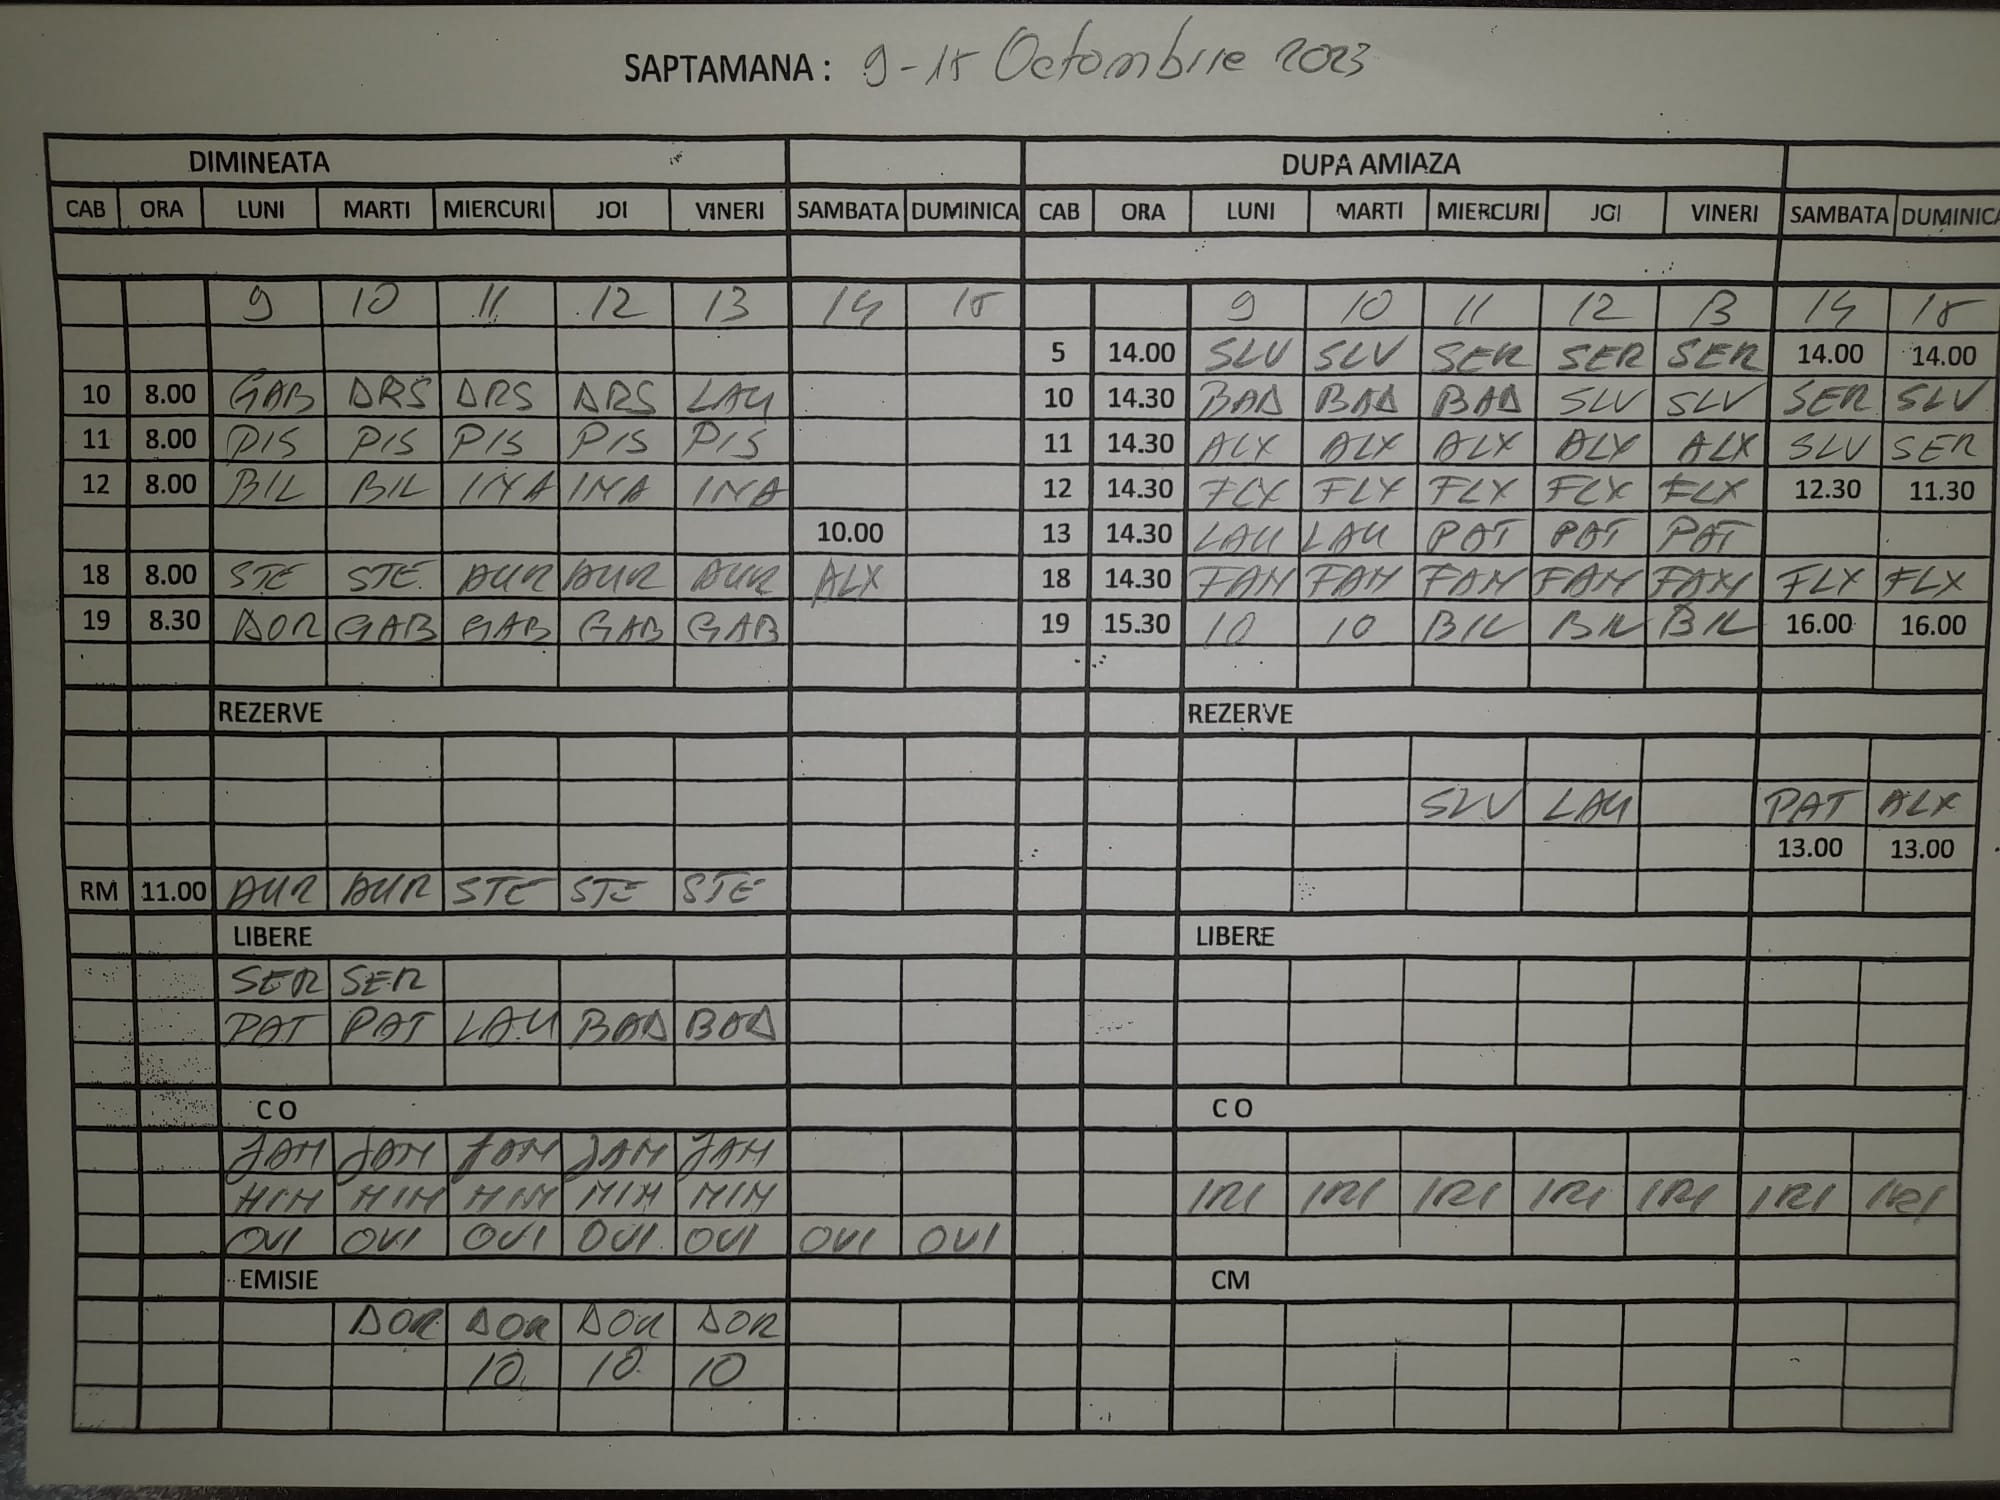 SAPTAMANA : 9-15 Octombrie 2023
DIMINEATA DUPA AMIAZA
CAB ORA LUNI MARTI MIERCURI JOI VINERI SAMBATA DUMINICA CAB ORA LUNI MARTI MIERCURI JOI VINERI SAMBATA DUMINICA
9 10 11 12 13 14 15 9 10 11 12 13 14 15
5 14.00 SLV SLV SER SER SER 14.00 14.00
10 8.00 GAB DRS DRS DRS LAU 10 14.30 BAD BAD BAD SLV SLV SER SLV
11 8.00 PIS PIS PIS PIS PIS 11 14.30 ALX ALX ALX ALX ALX SLV SER
12 8.00 BIL BIL INA INA INA 12 14.30 FLX FLX FLX FLX FLX 12.30 11.30
10.00 13 14.30 LAU LAU PAT PAT PAT
18 8.00 STE STE AUR AUR AUR ALX 18 14.30 FAM FAM FAM FAM FAM FLX FLX
19 8.30 DOR GAB GAB GAB GAB 19 15.30 10 10 BIL BIL BIL 16.00 16.00
REZERVE REZERVE
SLV LAU PAT ALX
13.00 13.00
RM 11.00 AUR AUR STE STE STE
LIBERE LIBERE
SER SER
PAT PAT LAU BAD BAD
C O C O
JAM JAM JAM JAM JAM
MIM MIM MIM MIM MIM IRI IRI IRI IRI IRI IRI IRI
OVI OVI OVI OVI OVI OVI OVI
EMISIE CM
DOR DOR DOR DOR
10 10 10